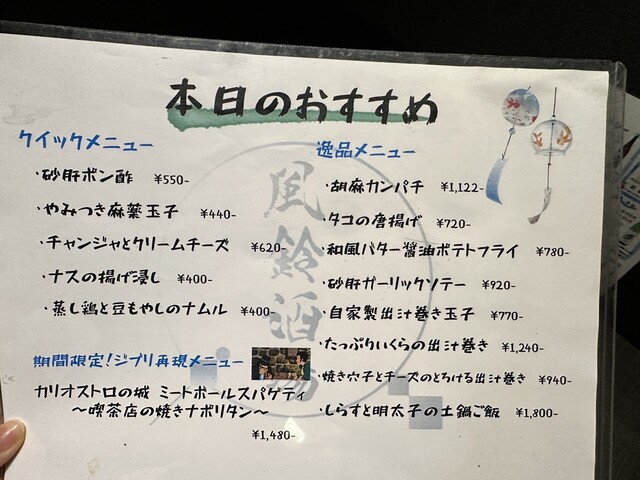 本日のおすすめ
クイックメニュー
・砂肝ポン酢 ¥550-
・やみつき麻薬玉子 ¥440-
・チャンジャとクリームチーズ ¥620-
・ナスの揚げ浸し ¥400-
・蒸し鶏と豆もやしのナムル ¥400-
期間限定!ジブリ再現メニュー
カリオストロの城 ミートボールスパゲティ
〜喫茶店の焼きナポリタン〜
¥1,480-
逸品メニュー
・胡麻カンパチ ¥1,122-
・タコの唐揚げ ¥720-
・和風バター醤油ポテトフライ ¥780-
・砂肝ガーリックソテー ¥920-
・自家製出汁巻き玉子 ¥770-
・たっぷりいくらの出汁巻き ¥1,240-
・焼き穴子とチーズのとろける出汁巻き ¥940-
・しらすと明太子の土鍋ご飯 ¥1,800-
風鈴酒